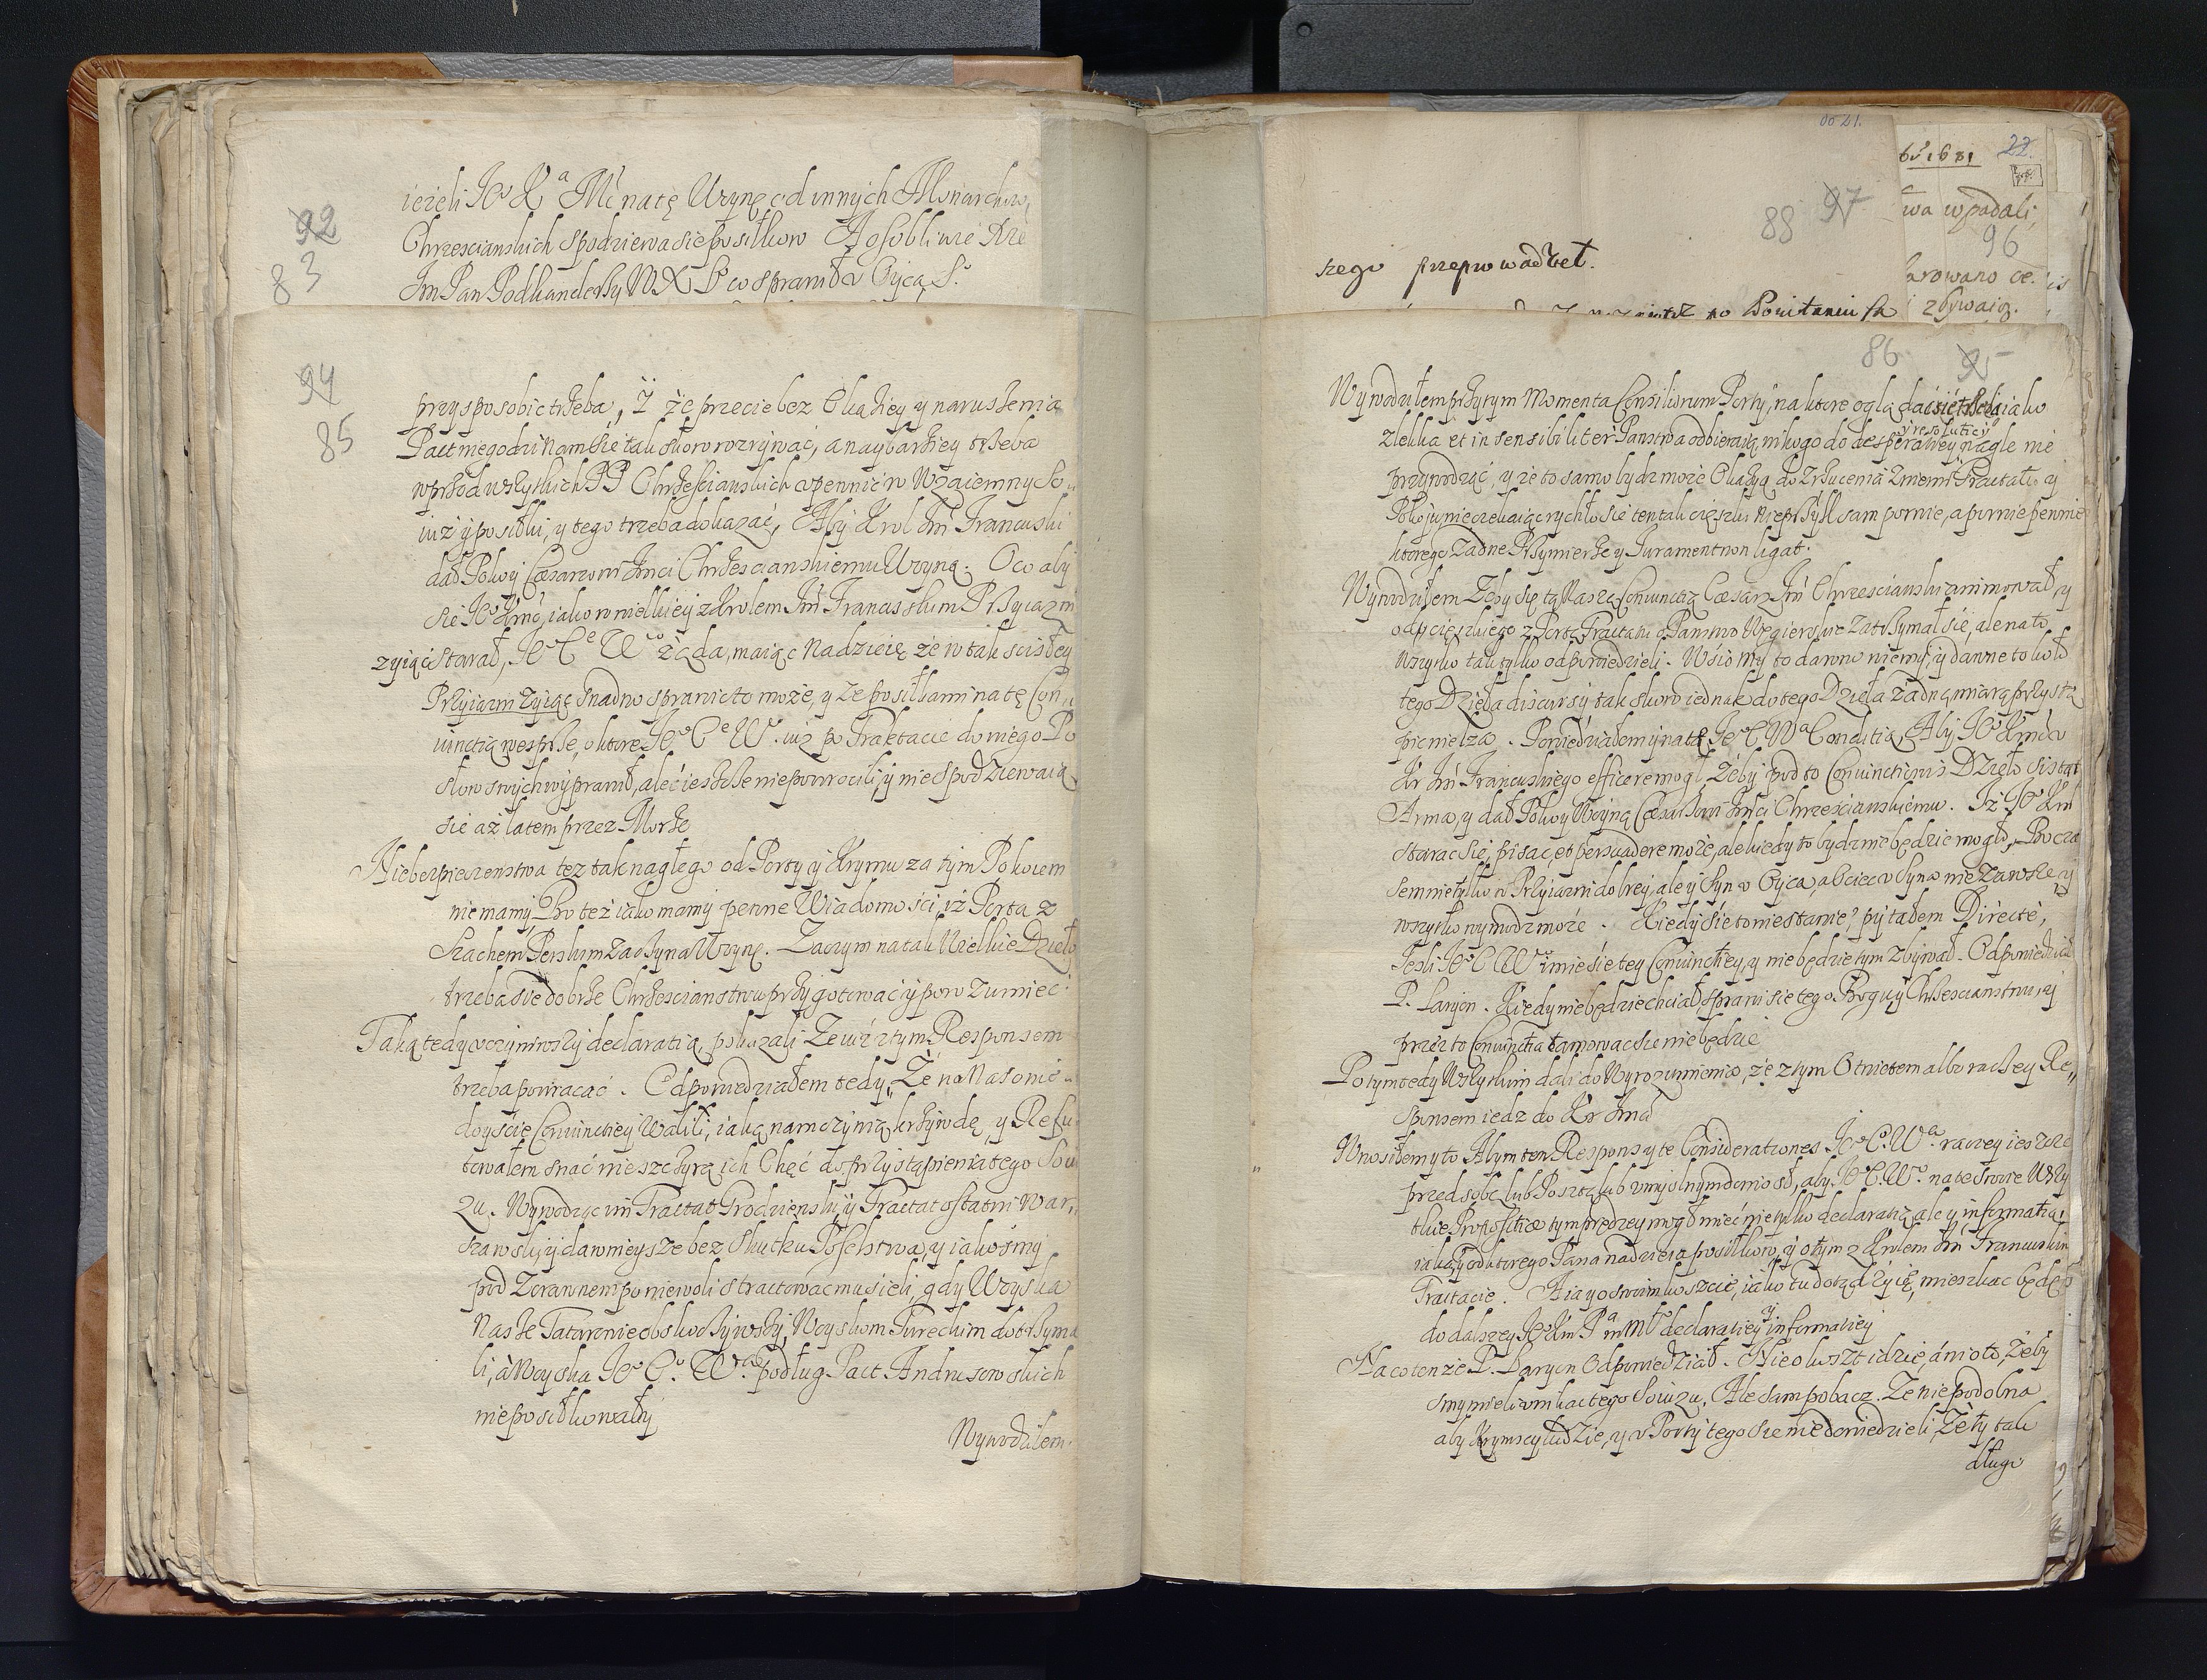 92
83
ieżeli Je° K^a Mć na tę Woynę od innych Monarchow
Chrzescianskich spodziewa sie posiłkow A osobliwie
Jm Pan Podkanclerzy WXL w sprawił Oyca S°
94
85
przysposobic trzeba, Y że przecie bez Okaziey y naruszenia
Pact niegodzi nam sie tak skoro rozrywać, a naybarziey trzeba
wprzod wszytkich PP Chrzescianskich upewnić w wzaiemny So„
iuż y posiłki, y tego trzeba dokazać, Aby Krol Jm Francuski
dał Pokoy Cæsarzowi Jmci Chrzescianskiemu Woyną. O co aby
sie Je° Kmć, iako w wielkiey z Krolem Jm Francuskim Przyiazni
zyiąc starał, Je° C^e W° żąda, maiąc nadzieię że w tak scisłey
Przyiazni zyiąc snadno sprawic to może, y że posiłkami na tę Con„
iunctią wesprze, o ktore Je° C^e W. iuż po Traktacie do niego Po
słow swych wyprawił, ale ci ieszcze nie powrocili, y nie spodziewaią
sie aż latem przez Morze
Niebezpieczenstwa tez tak nagłego od Porty y Krymu za tym Pokoiem
nie mamy, Bo też iako mamy pewne Wiadomości iż Porta z
Szachem Perskim zaczyna Woynę. Zaczym na tak Wielkie Dzieło
trzeba sie dobrze Chrzescianstwu przygotować y porozumiec.
Taką tedy uczyniwszy declaratią, pokazali Że iuż z tym Responsem
trzeba powracać. Odpowiedziałem tedy, Że na Nas o nie„
doyscie Coniunctiey Walili, iaką nam czynią krzywdę, y Refu„
towałem snać nieszczyrą ich Chęć do przystąpienia tego Sou
zu. Wywodząc im Tractat Grodzienski, y Tractat ostatni War„
szawski, y dawnieysze bez skutku Poselstwa, y iakosmy
pod Zorawnem poniewoli stractować musieli, gdy Woyska
Nasze Tatarowie obskoczywszy, Woyskom Tureckim dotrzyma
li, à Woyska Je° C° W^a podług Pact Andrusowskich
nie posiłkowały
Wywodziłem
do 21.
88 97
szego przeprowadzeł.
po Powitaniu
1681 22.
wa wpadali,
96
zbywaią.
86 95
Wywodziłem przytym Momenta Consiliorum Porty, na ktore oglądać sie trzeba iako
zlekka et insensibiliter Panstwa odbieraią nikogo do desperowaney y resolutiey nagle nie
przywodząc, y że to samo bydz może Okazyą do zrzucenia z niemi Tractatow y
Pokoju nieczekaiąc rychło sie ten tak cięszki Nieprzyiaciel sam porwie, a porwie pewnie
ktorego żadne Przymierze y Jurament non ligat.
Wywodziłem Żeby się tą Naszą Coniunctią Cæsarz Jm Chrzescianski animował y
od pcięszkiego z Portą Tractatu o Panstwo Węgierskie zatrzymał sie, ale na to
wszytko tak tylko odpowiedzieli. Wsio my to dawno niemy, y dawne to koło
tego Dzieła discursy tak skoro iednak do tego Dzieła żadną miarą przystą
pic nielza. Powiedziałem y na tę Je° C° W^a Conditią Aby Je° Kmć u
Kr Jm Francuskiego efficere mogł, żeby pod to Coniunctionis Dzieło sistat
Arma, y dał Pokoy Woyną Cæsarzowi Jmci Chrzescianskiemu. Iż Je° Km
starac sie, pisac, et persuadere może, ale kiedy to bydz nie będzie mogło, Bo cza
sem nie tylko w Przyiazni dobrey, ale y Syn u Oyca, a Ociec u Syna nie zawsze y
wszytko wymodz może. Kiedy sie to nie stanie? pytałem Directè,
Jesli Je° C° W° imie sie tey Coniunctiey, y nie będzie tym zbywał. Odpowiedział
P. Laryon. Kiedy nie będzie chciał sprawi sie tego Bogu y Chrzescianstwu, y
przez to Coniunctia tamowac sie nie będzie
Potym tedy Wszytkim dali do Wyrozumienia, że z tym Otwietem albo raczey Re„
sponsem iedz do Kr Jmci
Wnosiłem y to Abym ten Respons y te Considerationes Je° C° W^a raczey ieszcze
przed sobą lub Posztą lub umyslnym donosł, aby Je° C° W° na te swoie Wszy
tkie Propositiæ tym prędzey mogł mieć nietylko declaratią ale y informatią
iaka, y od ktorego Pana nadzieia posiłkow, y o tym z Krolem Jm Francuskim
Tractacie. A ia y o swoim koszcie, iako tu dotąd żyię, mieszkac będę
do dalszey Je° Km P^a m M° declaratiey y informatiey
Na co tenże P. Laryon Odpowiedział. Nie o koszt idzie, áni o to, żeby
smy mieli umkac tego Soiuzu, Ale sam pobacz. Że niepodobna
aby Krymscy ludzie, y u Porty tego sie niedowiedzieli, Że ty tak
długo